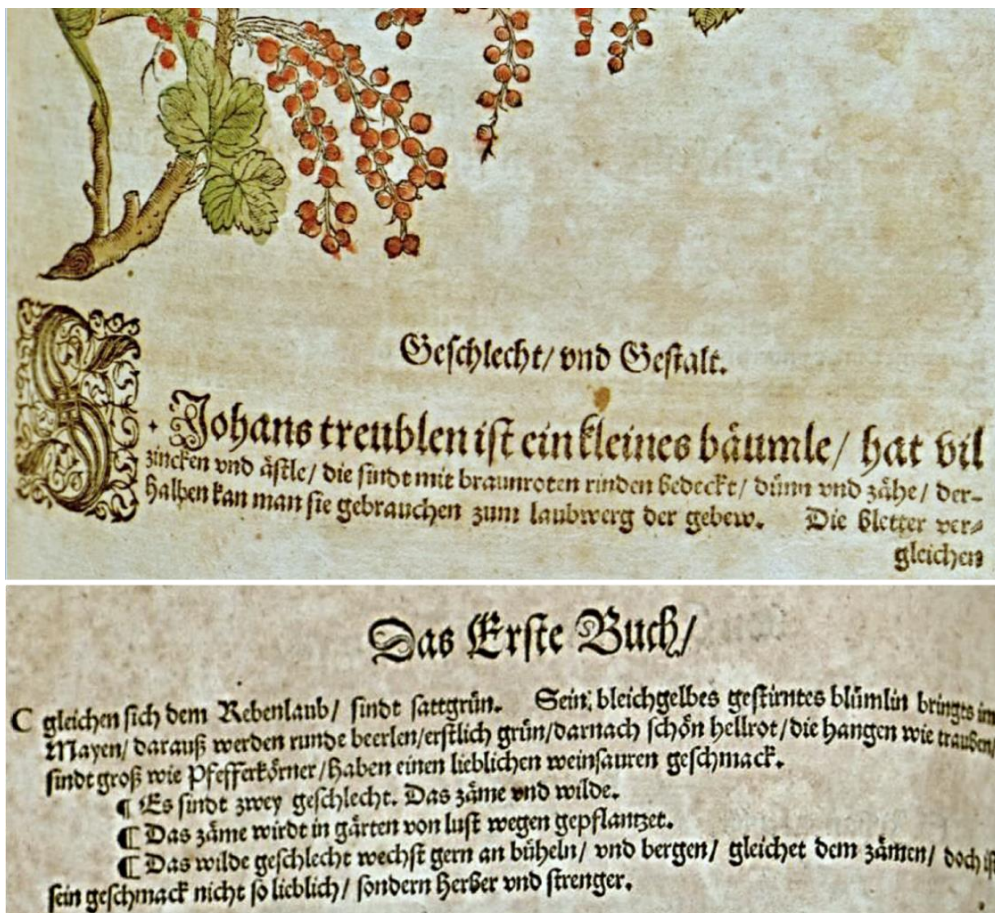 Geschlecht/ vnd Gestalt.
S. Johans treublen ist ein kleines bäumle/ hat vil
zincken vnd ästle/ die sindt mit braunroten rinden bedeckt/ dünn vnd zähe/ der-
halben kan man sie gebrauchen zum laubwerg der gebew. Die bletter ver-
gleichen
Das Erste Buch/
C gleichen sich dem Rebenlaub/ sindt sattgrün. Sein bleichgelbes gestirntes blümlin bringts im
Mayen/ darauß werden runde beerlen/ erstlich grün/ darnach schön hellrot/ die hangen wie trauben/
sindt groß wie Pfefferkörner/ haben einen lieblichen weinsauren geschmack.
¶ Es sindt zwey geschlecht. Das zäme vnd wilde.
¶ Das zäme wirdt in gärten von lust wegen gepflantzet.
¶ Das wilde geschlecht wechst gern an büheln/ vnd bergen/ gleichet dem zämen/ doch ist
sein geschmack nicht so lieblich/ sondern herber vnd strenger.